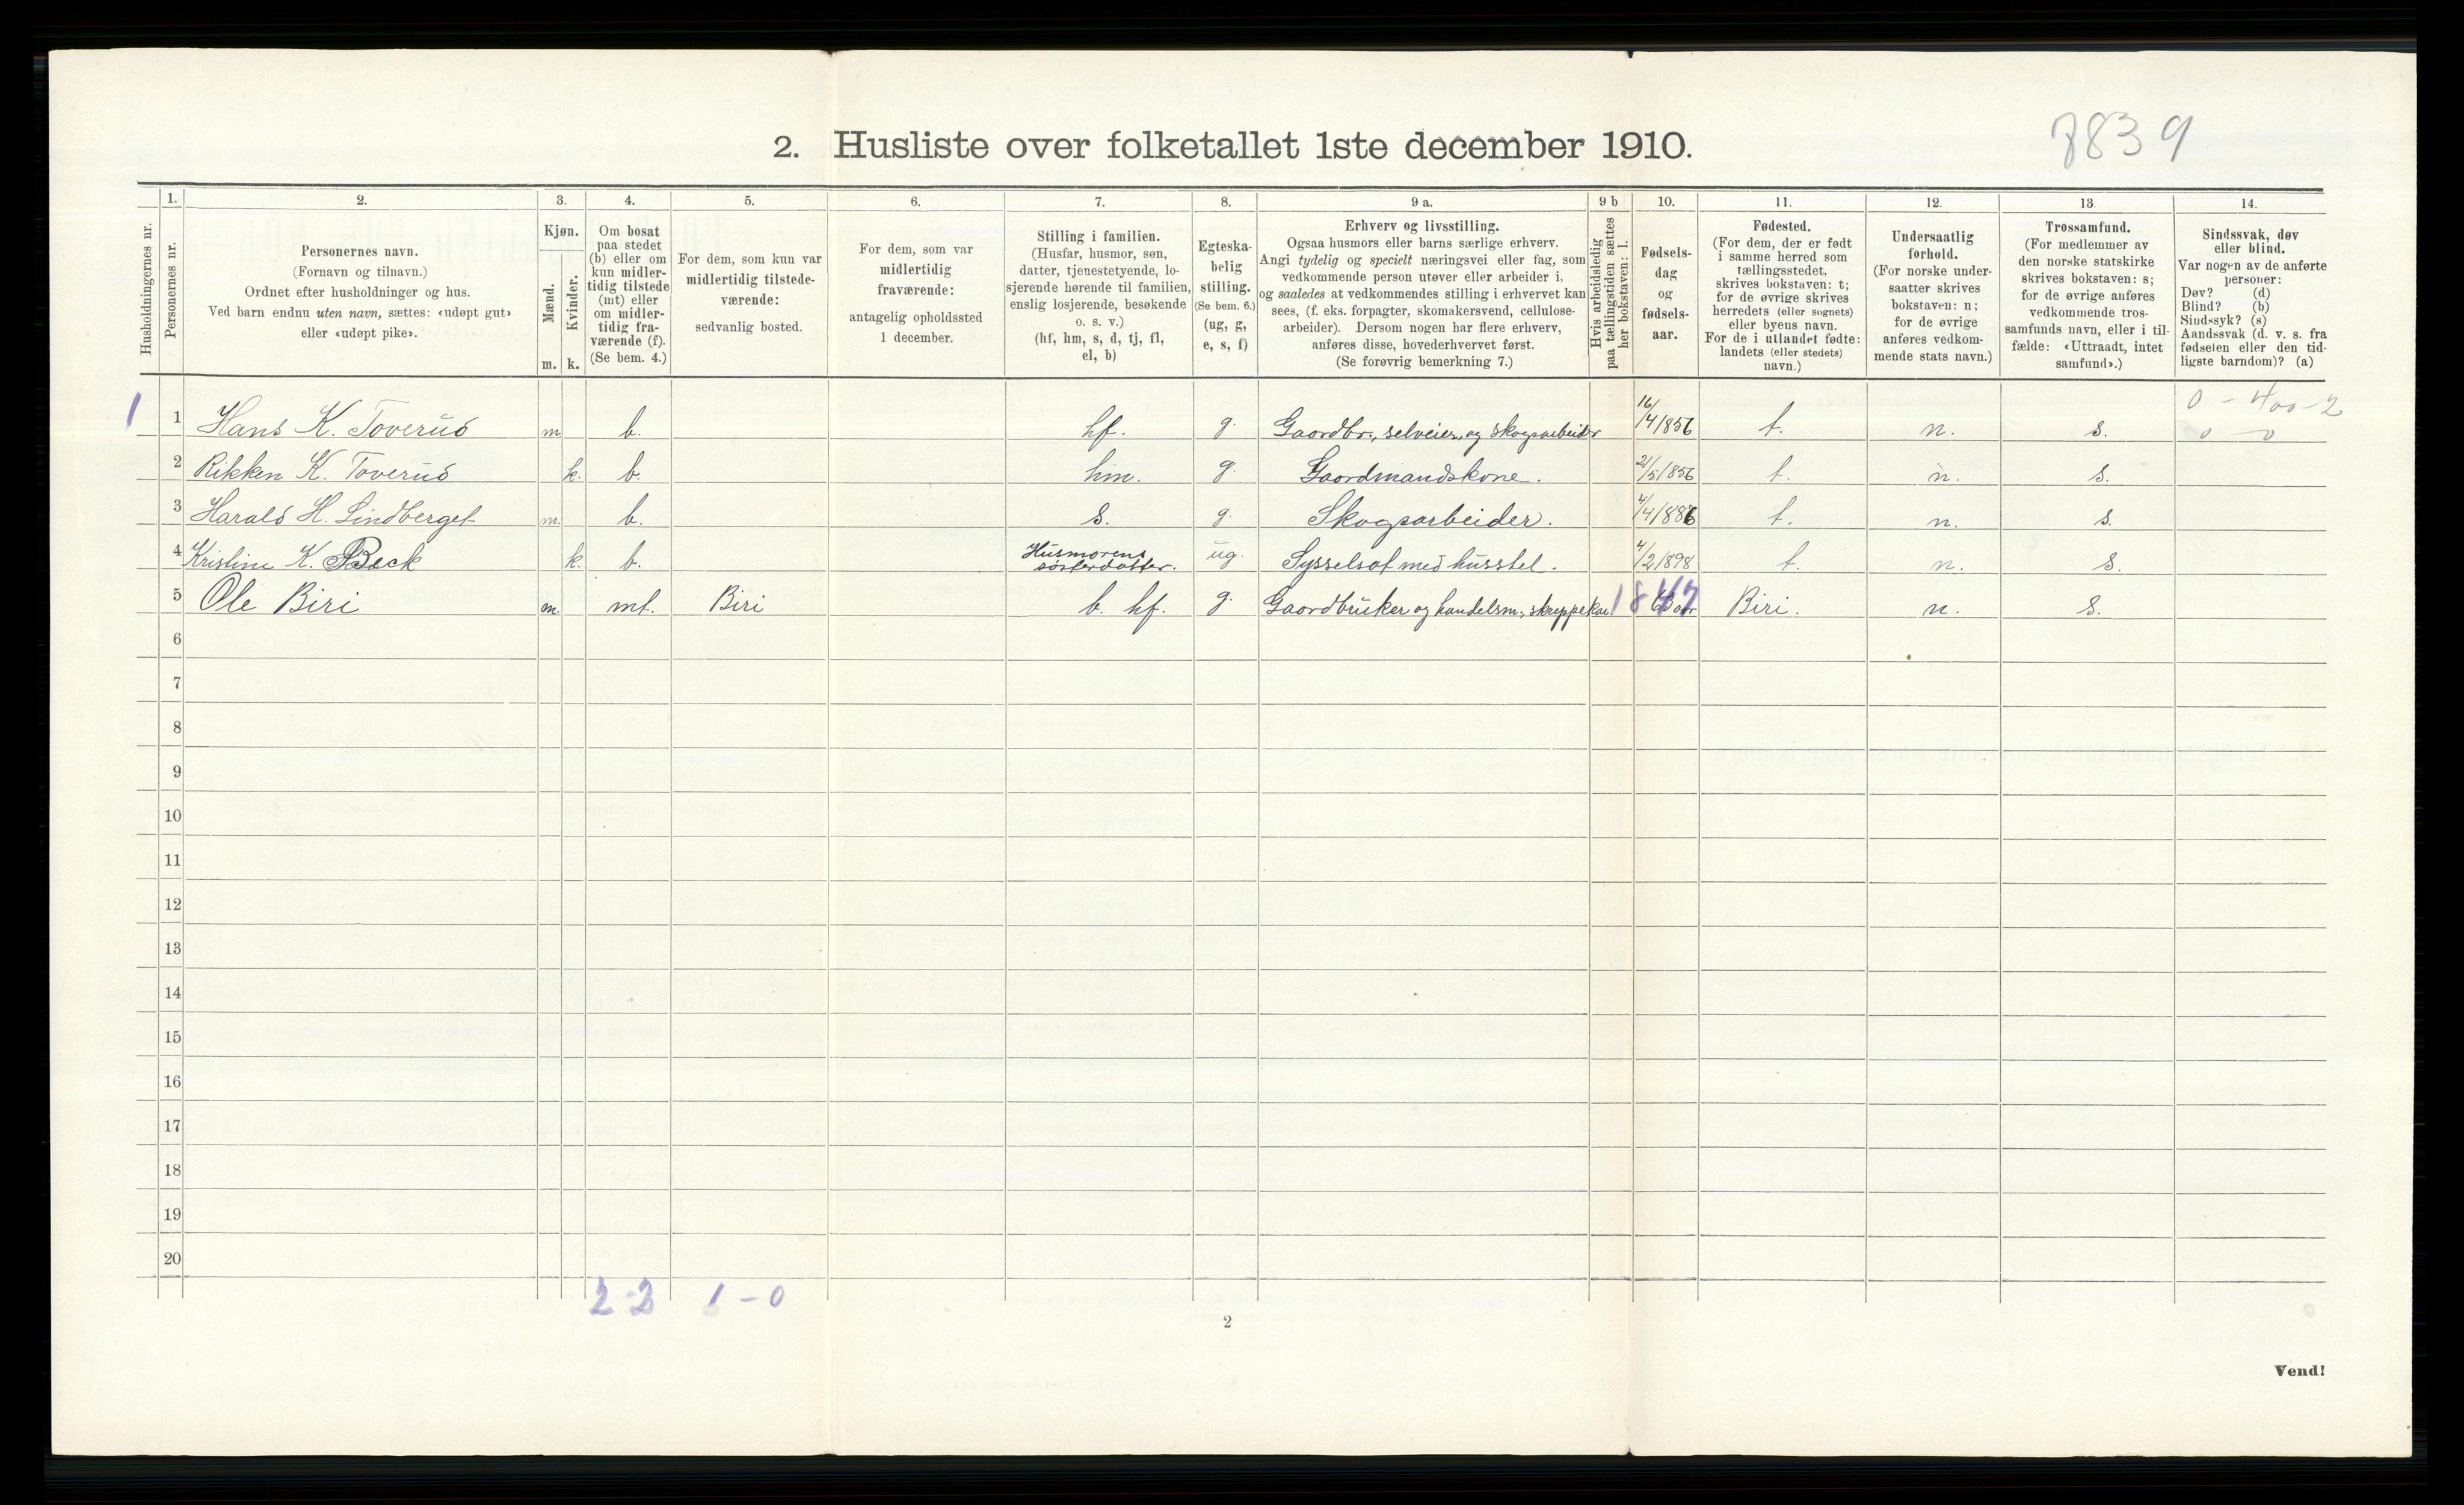 7839
2. Husliste over folketallet 1ste december 1910.
Husholdningernes nr.
1.
Personernes nr.
2.
Personernes navn.
(Fornavn og tilnavn.)
Ordnet efter husholdninger og hus.
Ved barn endnu uten navn, sættes: «udøpt gut»
eller «udøpt pike».
3.
Kjøn.
Mænd.
Kvinder.
m. k.
4.
Om bosat
paa stedet
(b) eller om
kun midler-
tidig tilstede
(mt) eller
om midler-
tidig fra-
værende (f).
(Se bem. 4.)
5.
For dem, som kun var
midlertidig tilstede-
værende:
sedvanlig bosted.
6.
For dem, som var
midlertidig
fraværende:
antagelig opholdssted
1 december.
7.
Stilling i familien.
(Husfar, husmor, søn,
datter, tjenestetyende, lo-
sjerende hørende til familien,
enslig losjerende, besøkende
o. s. v.)
(hf, hm, s, d, tj, fl,
el, b)
8.
Egteska-
belig
stilling.
(Se bem. 6.)
(ug, g,
e, s, f)
9 a.
Erhverv og livsstilling.
Ogsaa husmors eller barns særlige erhverv.
Angi tydelig og specielt næringsvei eller fag, som
vedkommende person utøver eller arbeider i,
og saaledes at vedkommendes stilling i erhvervet kan
sees, (f. eks. forpagter, skomakersvend, cellulose-
arbeider). Dersom nogen har flere erhverv,
anføres disse, hovederhvervet først.
(Se forøvrig bemerkning 7.)
9 b
Hvis arbeidsledig
paa tællingstiden sættes
her bokstaven: l.
10.
Fødsels-
dag
og
fødsels-
aar.
11.
Fødested.
(For dem, der er født
i samme herred som
tællingsstedet,
skrives bokstaven: t;
for de øvrige skrives
herredets (eller sognets)
eller byens navn.
For de i utlandet fødte:
landets (eller stedets)
navn.)
12.
Undersaatlig
forhold.
(For norske under-
saatter skrives
bokstaven: n;
for de øvrige
anføres vedkom-
mende stats navn.)
13
Trossamfund.
(For medlemmer av
den norske statskirke
skrives bokstaven: s;
for de øvrige anføres
vedkommende tros-
samfunds navn, eller i til-
fælde: «Uttraadt, intet
samfund».)
14.
Sindssvak, døv
eller blind.
Var nogen av de anførte
personer:
Døv? (d)
Blind? (b)
Sindssyk? (s)
Aandssvak (d. v. s. fra
fødselen eller den tid-
ligste barndom)? (a)
0 - 400 - 2
0 0
1 1 Hans K. Toverud m b. hf. g. Gaardbr., selveier, og skogsarbeider 16/4 1856 t. n. s.
2 Rikken K. Toverud k. b. hm. g. Gaardmandskone. 21/5 1856 t. n. s.
3 Harald H. Lindberget m. b. s. g. Skogsarbeider. 4/4 1886 t. n. s.
4 Kristine K. Beck k. b. Husmorens søsterdatter. ug. Sysselsat med husstel. 4/2 1898 t. n. s.
5 Ole Biri m. mt. Biri b. hf. g. Gaardbruker og handelsm., skreppekar. 1847 Biri. n. s.
6
7
8
9
10
11
12
13
14
15
16
17
18
19
20
2-2 1-0
2
Vend!